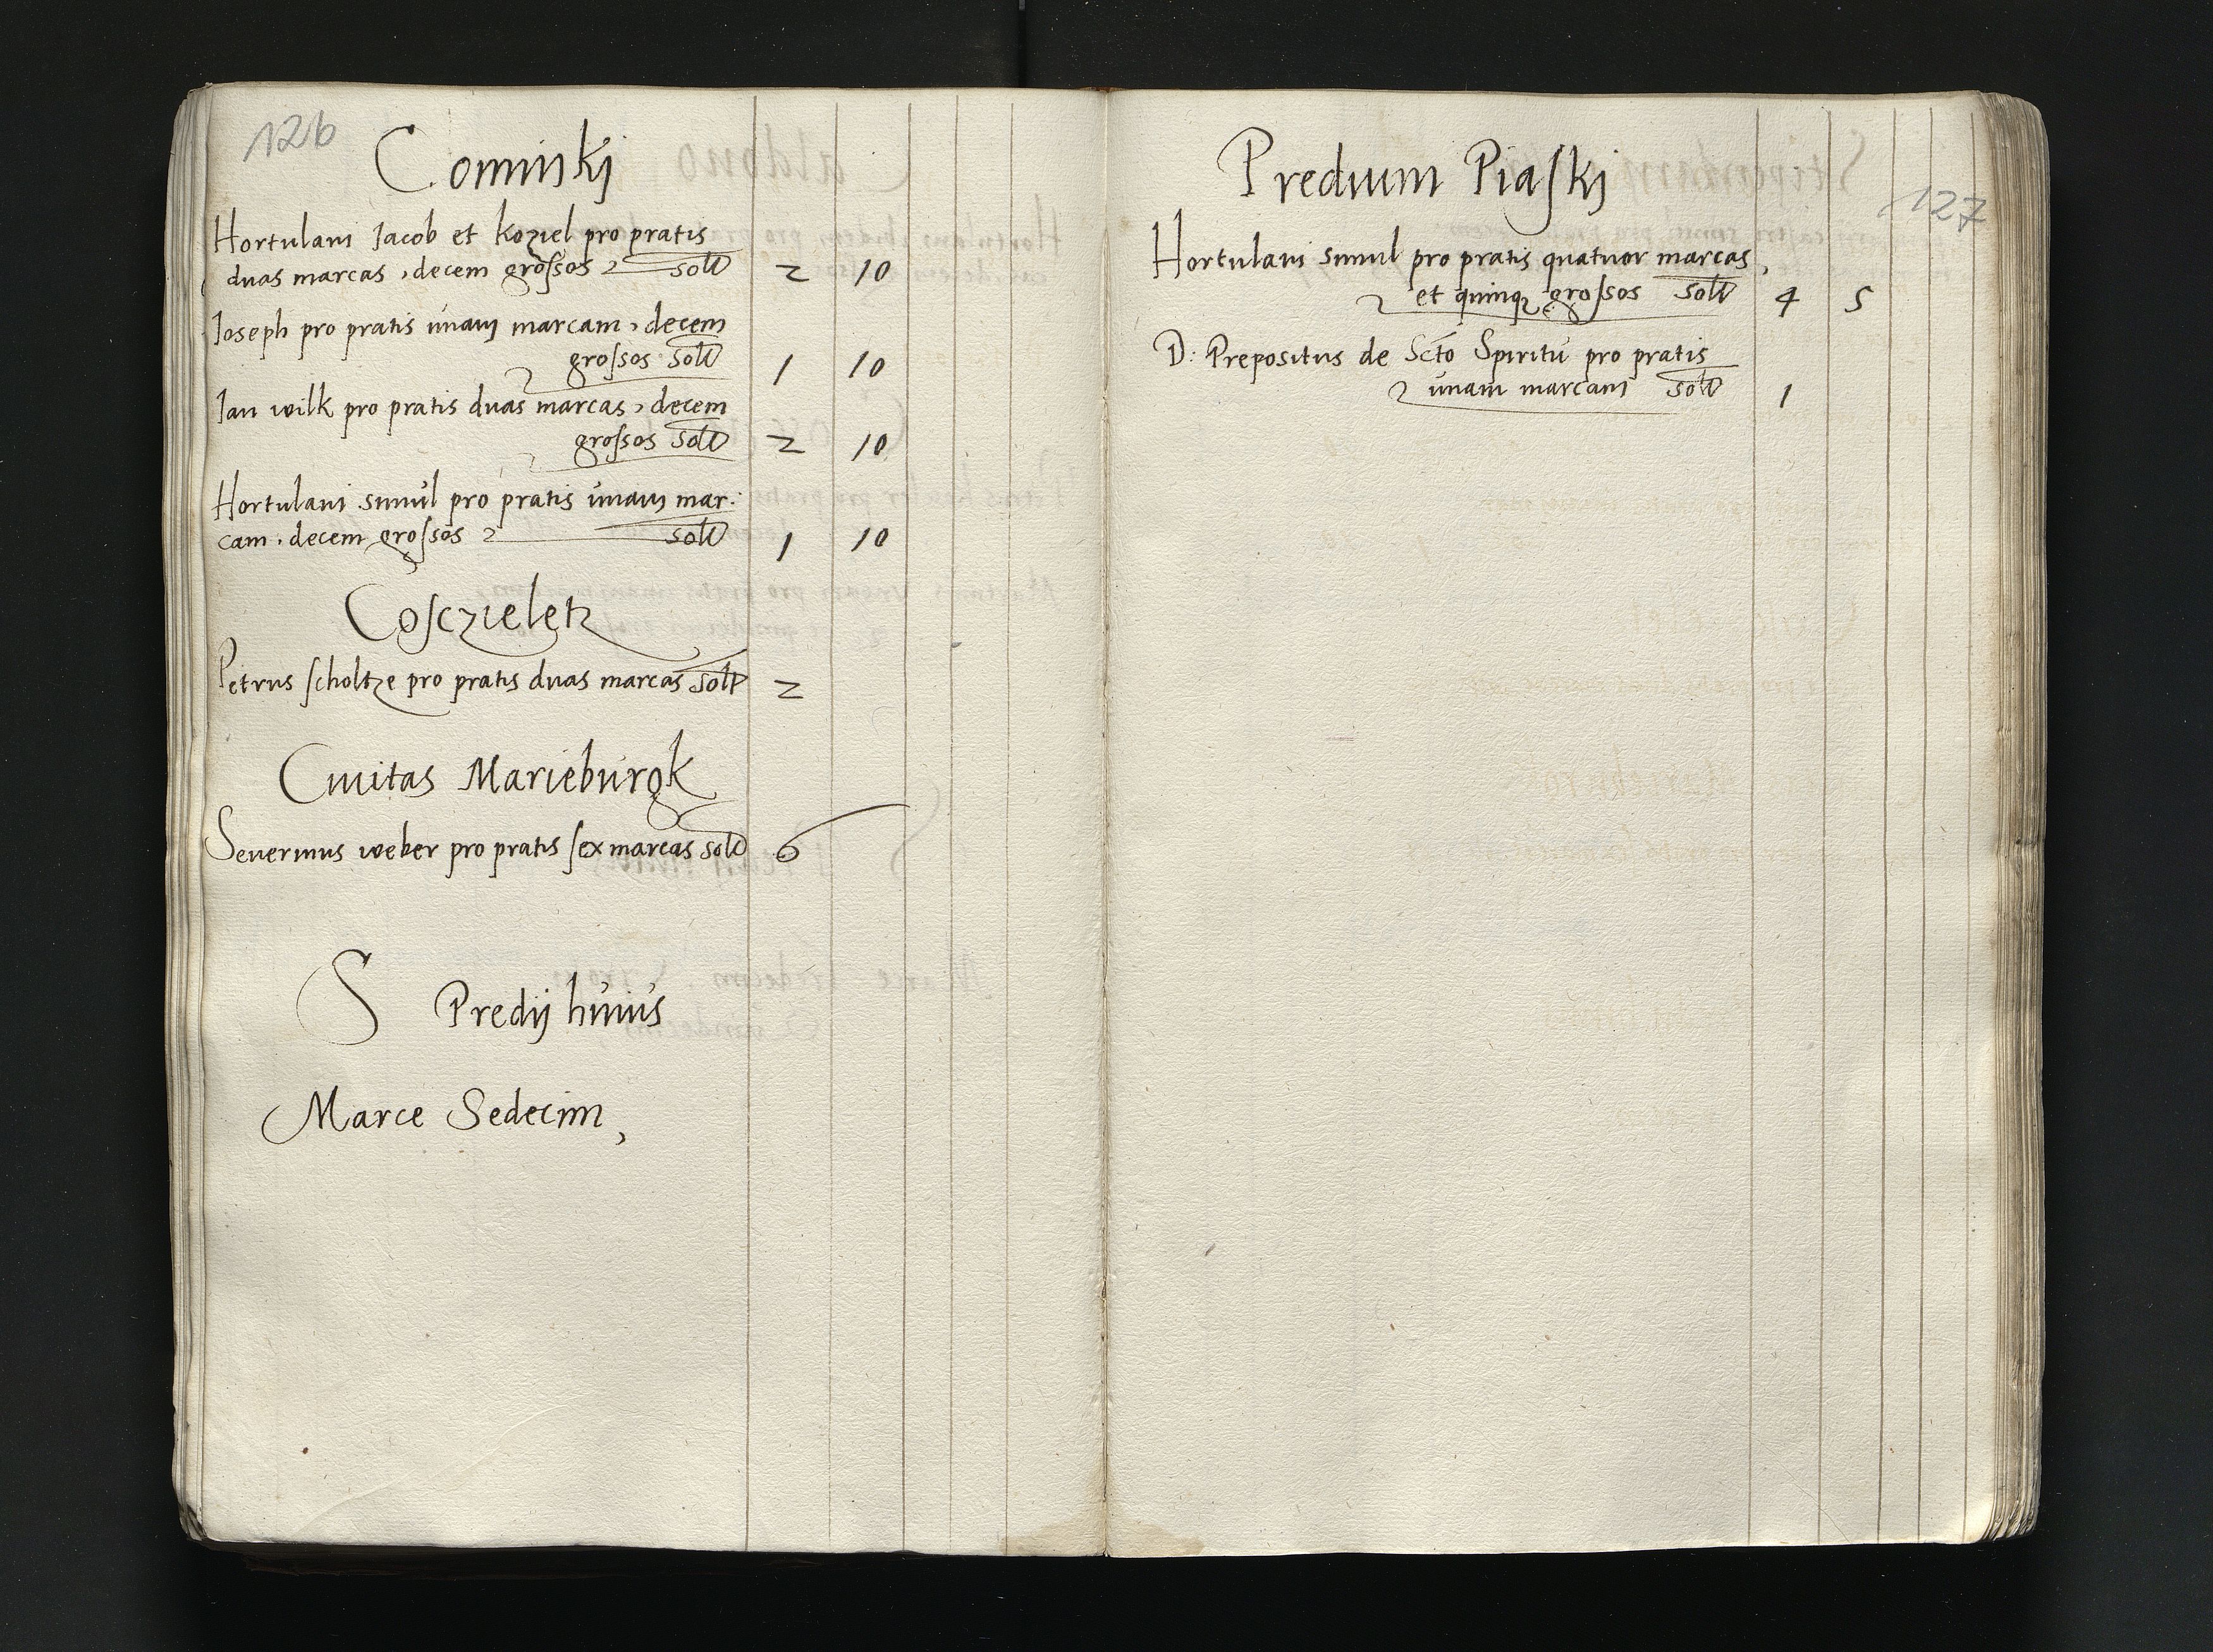 126
Cominskj
Hortulani Jacob et koziel pro pratis
duas marcas, decem grossos solt 2 10
Joseph pro pratis unam marcam, decem
grossos solt 1 10
Jan wilk pro pratis duas marcas, decem
grossos solt 2 10
Hortulani simul pro pratis unam mar:
cam, decem grossos solt 1 10
Cosczieletz
Petrus scholtze pro pratis duas marcas solt 2
Civitas Marieburgk
Severinus weber pro pratis sex marcas solt 6
S Predij huius
Marce Sedecim,
127
Predium Piaskj
Hortulani simul pro pratis quatuor marcas,
et quinq grossos solt 4 5
D: Prepositus de Scto Spiritu pro pratis
unam marcam solt 1